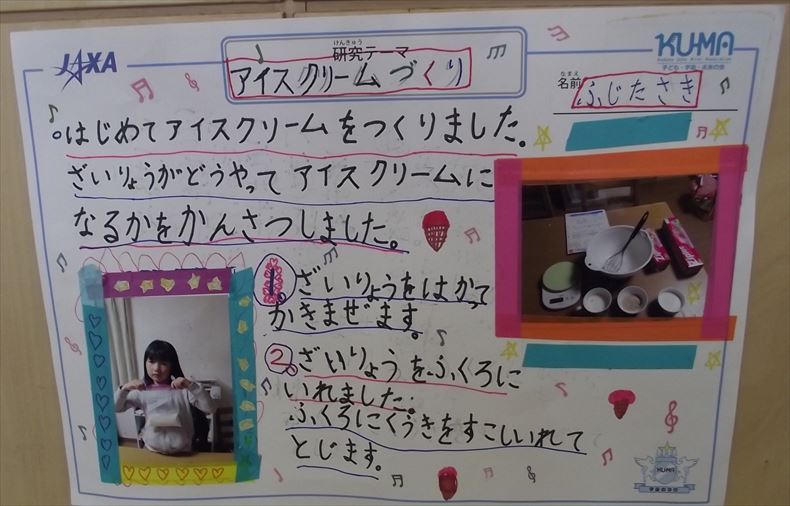 JAXA
けんきゅう
研究テーマ
アイスクリームづくり
KU-MA
子ども・宇宙・未来の会
なまえ
名前 ふじたさき
。はじめてアイスクリームをつくりました。
ざいりょうがどうやってアイスクリームに
なるかをかんさつしました。
1. ざいりょうをはかって
かきまぜます。
2. ざいりょうをふくろに
いれました。
ふくろにくうきをすこしいれて
とじます。
KUMA